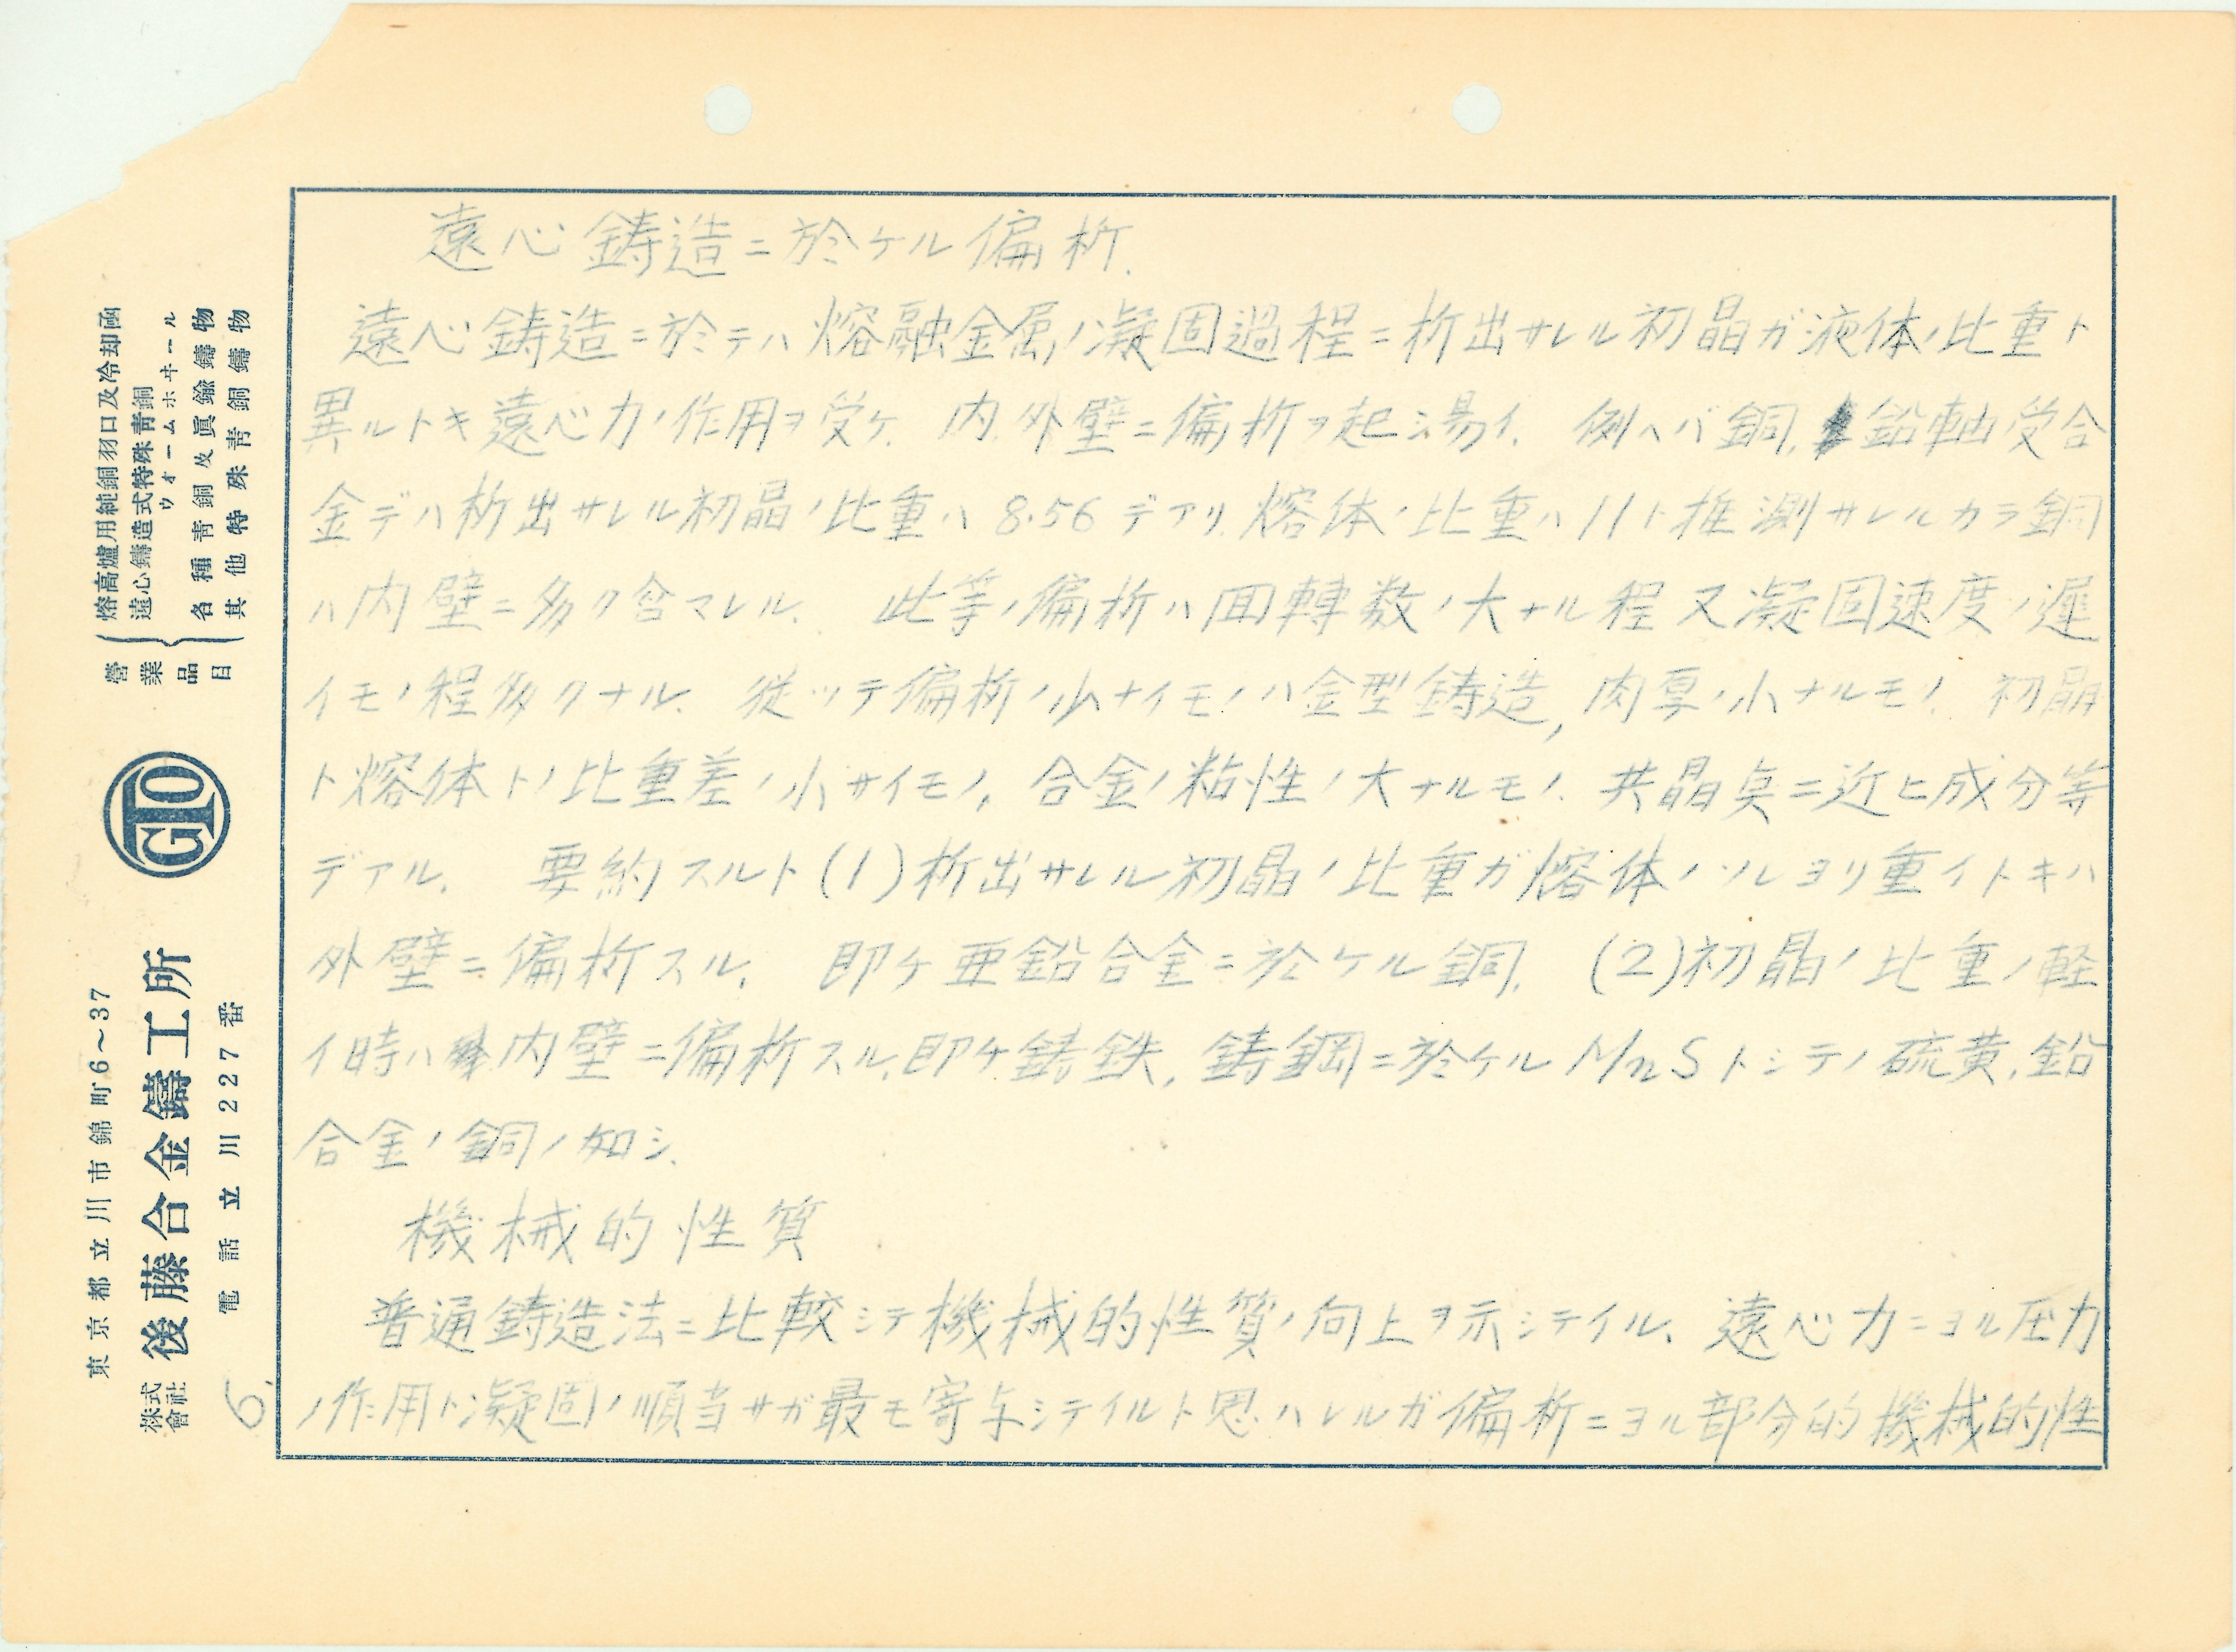 遠心鋳造ニ於ケル偏析.
遠心鋳造ニ於テハ熔融金属ノ凝固過程ニ析出サレル初晶ガ液体ノ比重ト
異ルトキ遠心力ノ作用ヲ受ケ、内、外壁ニ偏析ヲ起シ易イ、例ヘバ銅、鉛軸受合
金デハ析出サレル初晶ノ比重ハ8.56デアリ、熔体ノ比重ハ11ト推測サレルカラ銅
ハ内壁ニ多ク含マレル、此等ノ偏析ハ回轉数ノ大ナル程又凝固速度ノ遅
イモノ程多クナル、従ッテ偏析ノ少ナイモノハ金型鋳造,肉厚ノ小ナルモノ、初晶
ト熔体トノ比重差ノ小サイモノ、合金ノ粘性ノ大ナルモノ、共晶点ニ近ヒ成分等
デアル、要約スルト(1)析出サレル初晶ノ比重ガ熔体ノソレヨリ重イトキハ
外壁ニ偏析スル、即チ亜鉛合金ニ於ケル銅、(2)初晶ノ比重ノ軽
イ時ハ内壁ニ偏析スル、即チ鋳鉄、鋳鋼ニ於ケルMnSトシテノ硫黄、鉛
合金ノ銅ノ如シ、
機械的性質
普通鋳造法ニ比較シテ機械的性質ノ向上ヲ示シテイル、遠心力ニヨル圧力
ノ作用ト凝固ノ順当サガ最モ寄与シテイルト思ハレルガ偏析ニヨル部分的機械的性
營業品目
熔高爐用純銅羽口及冷却函
遠心鑄造式特殊青銅ウォームホヰール
各種青銅及眞鍮鑄物
其他特殊青銅鑄物
GTO
東京都立川市錦町6～37
株式會社 後藤合金鑄工所
電話立川227番
6.